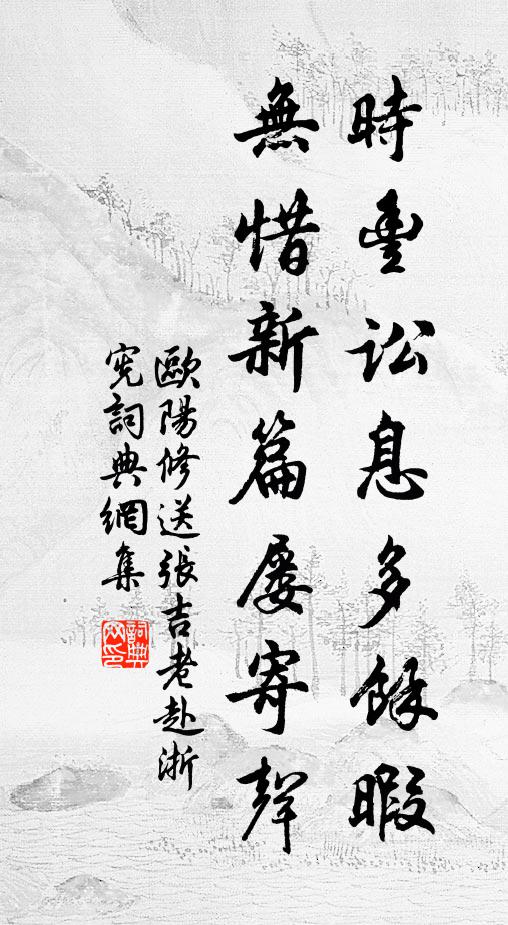 時豊訟息多餘暇
無惜新篇屡寄聲
歐陽修送張吉老赴浙
宪詞典網集
詞典网印